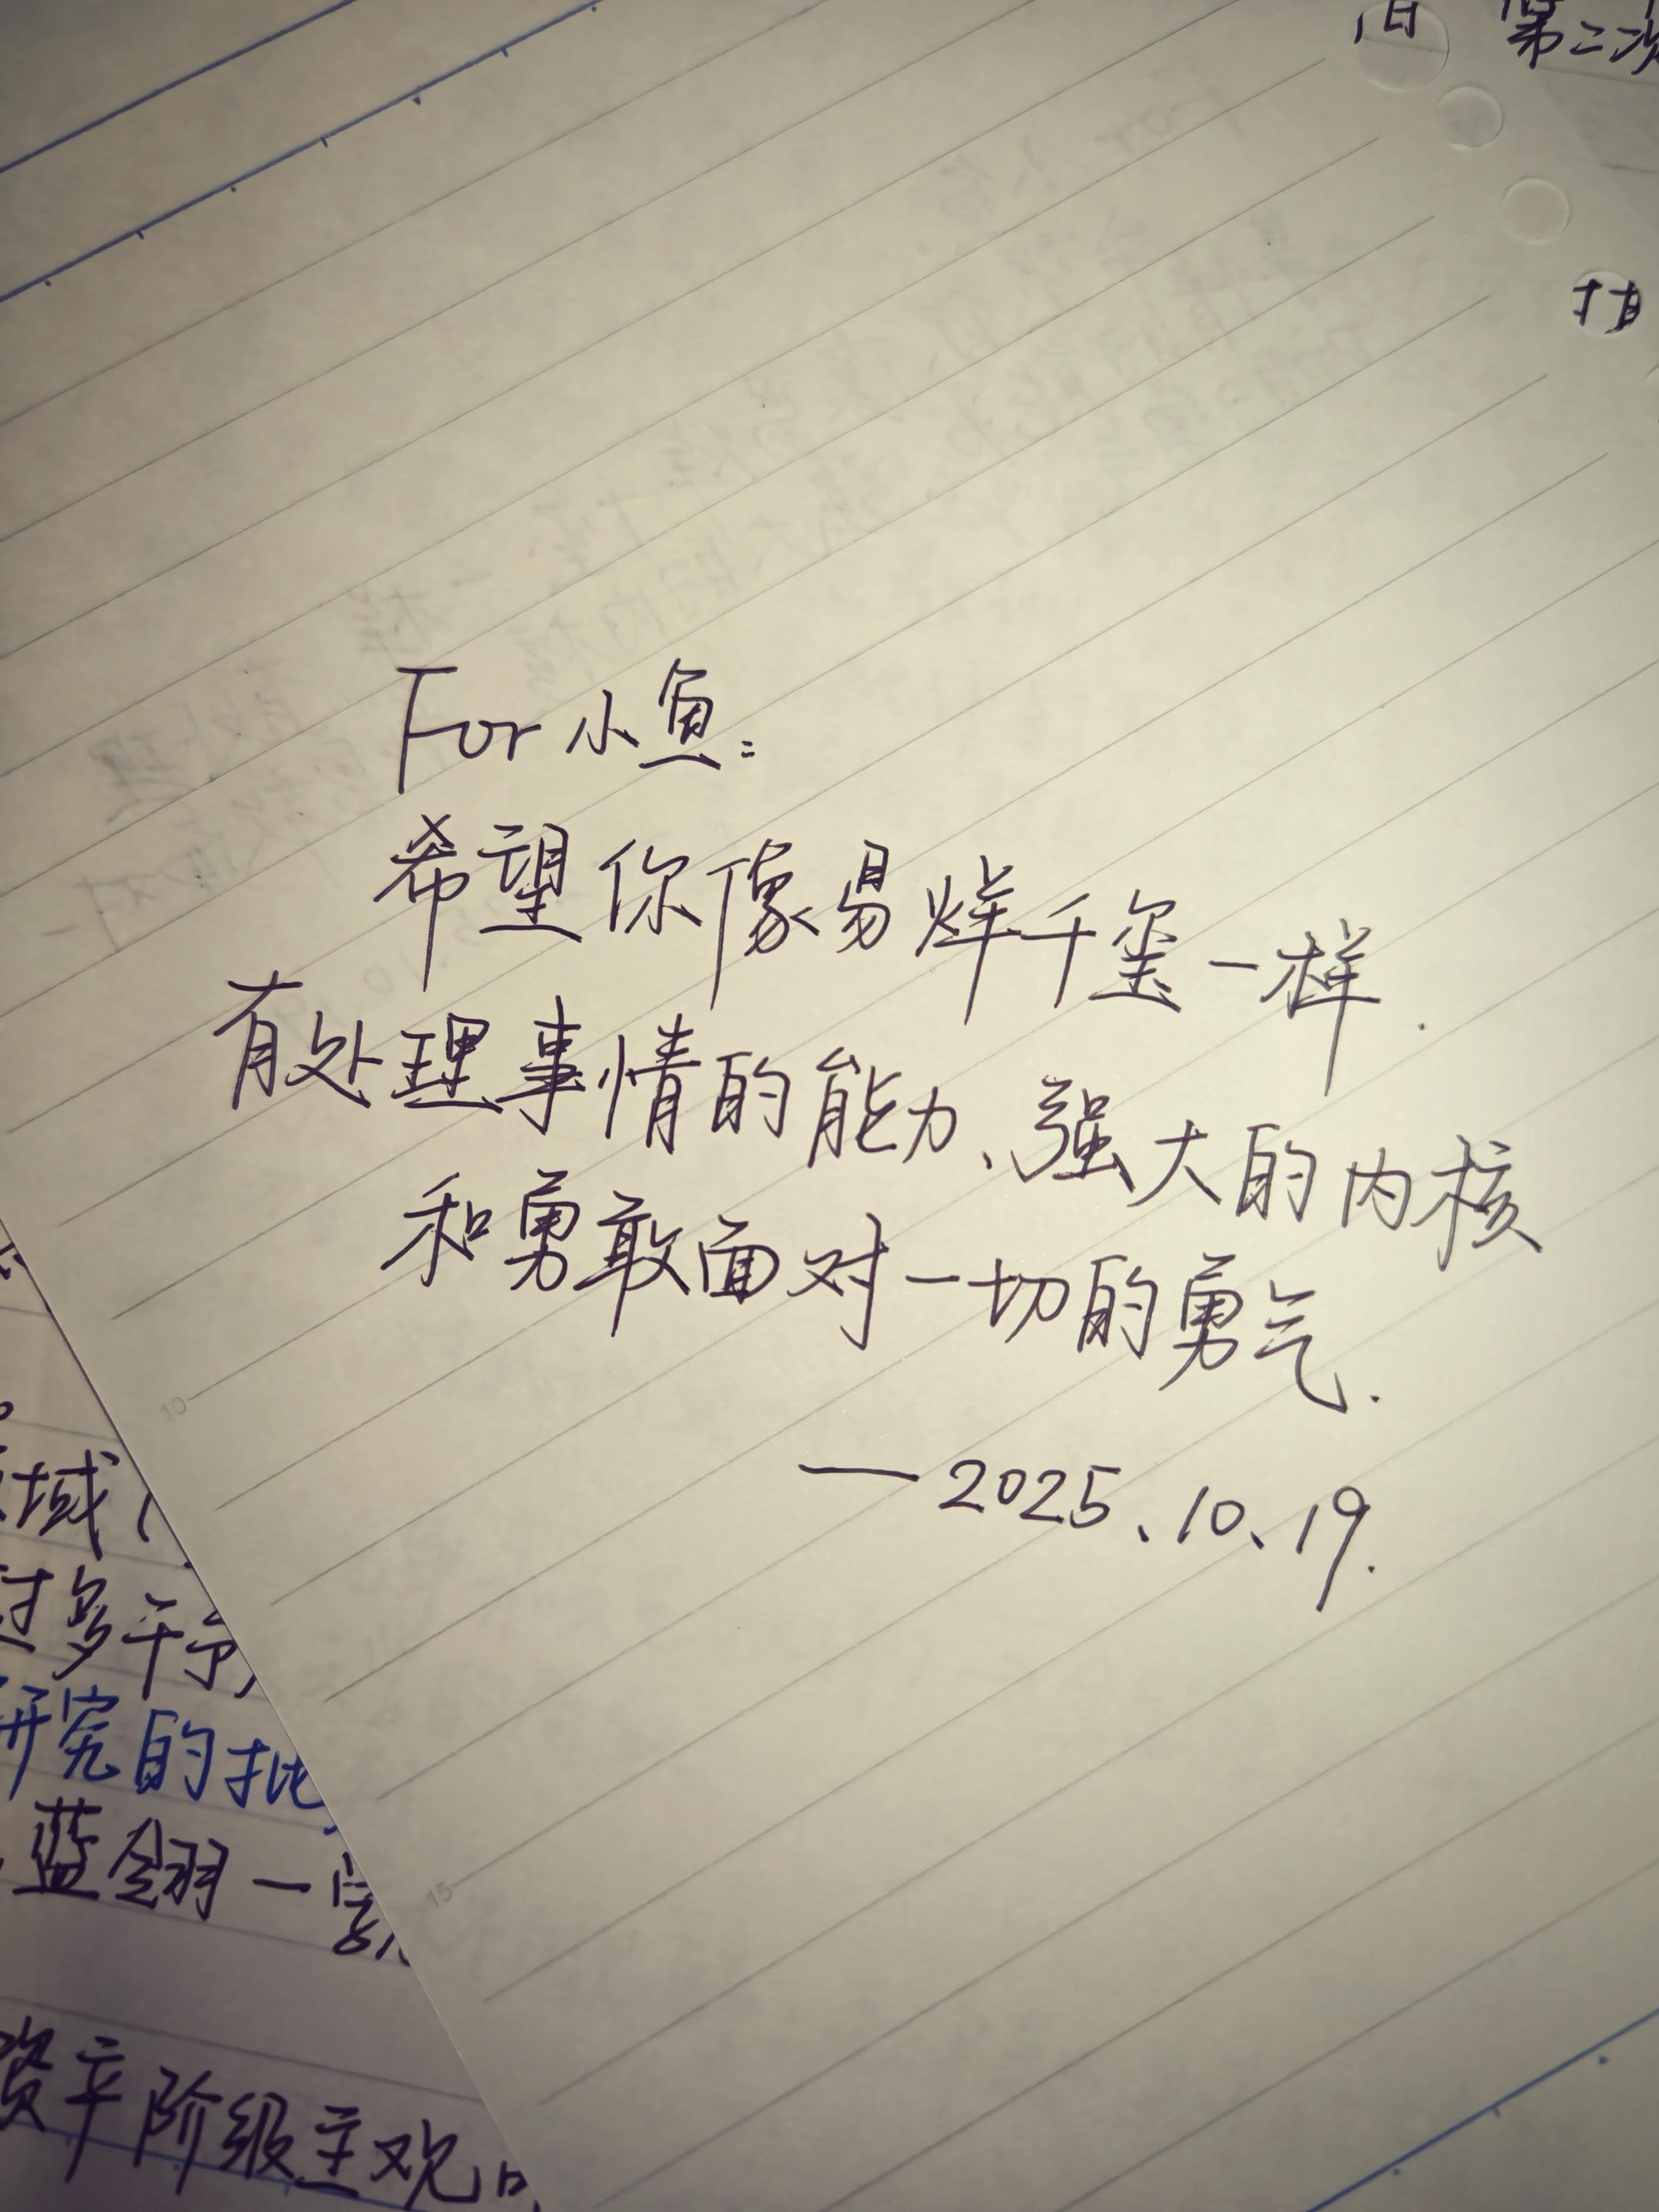 第二次
For 小鱼:
希望你像易烊千玺一样.
有处理事情的能力、强大的内核
和勇敢面对一切的勇气.
—2025、10、19.
域
过多干予,
研究的批
蓝翎一
资产阶级主观